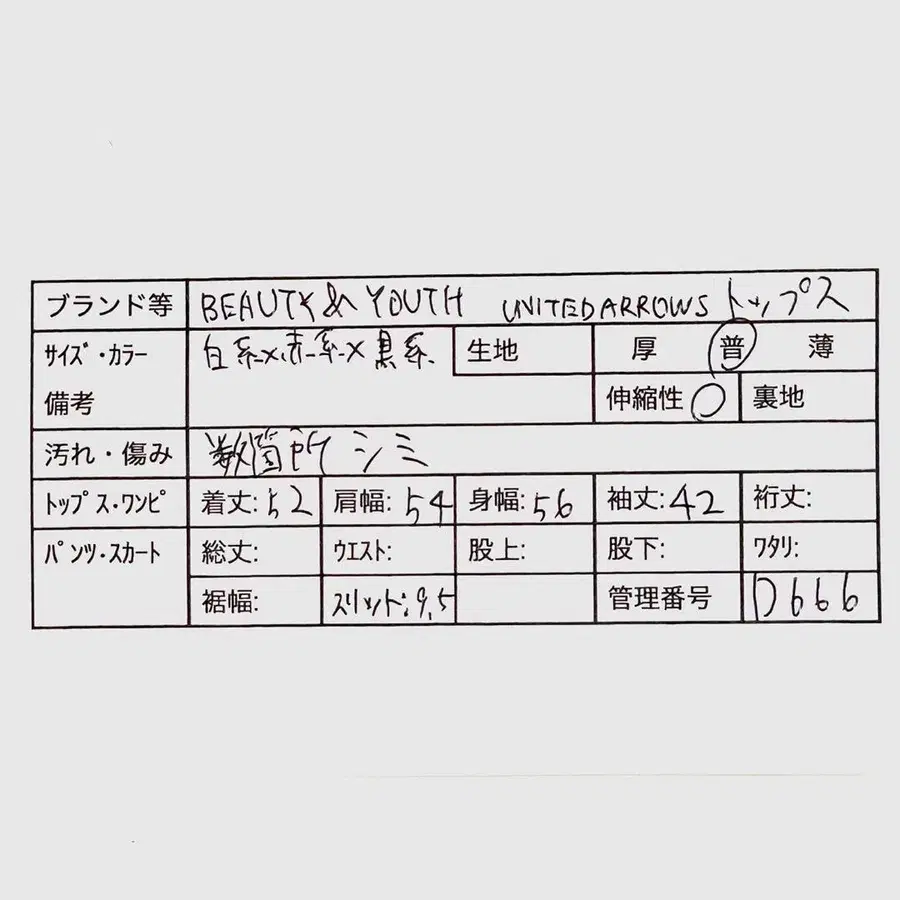 ブランド等 BEAUTY& YOUTH UNITED ARROWS トップス
サイズ・カラー 白系×赤系×黒系 生地 厚 普 薄
備考 伸縮性 ○ 裏地
汚れ・傷み 数箇所シミ
トップス・ワンピ 着丈:52 肩幅:54 身幅:56 袖丈:42 裄丈:
パンツ・スカート 総丈: ウエスト: 股上: 股下: ワタリ:
裾幅: スリット:9.5 管理番号 D666